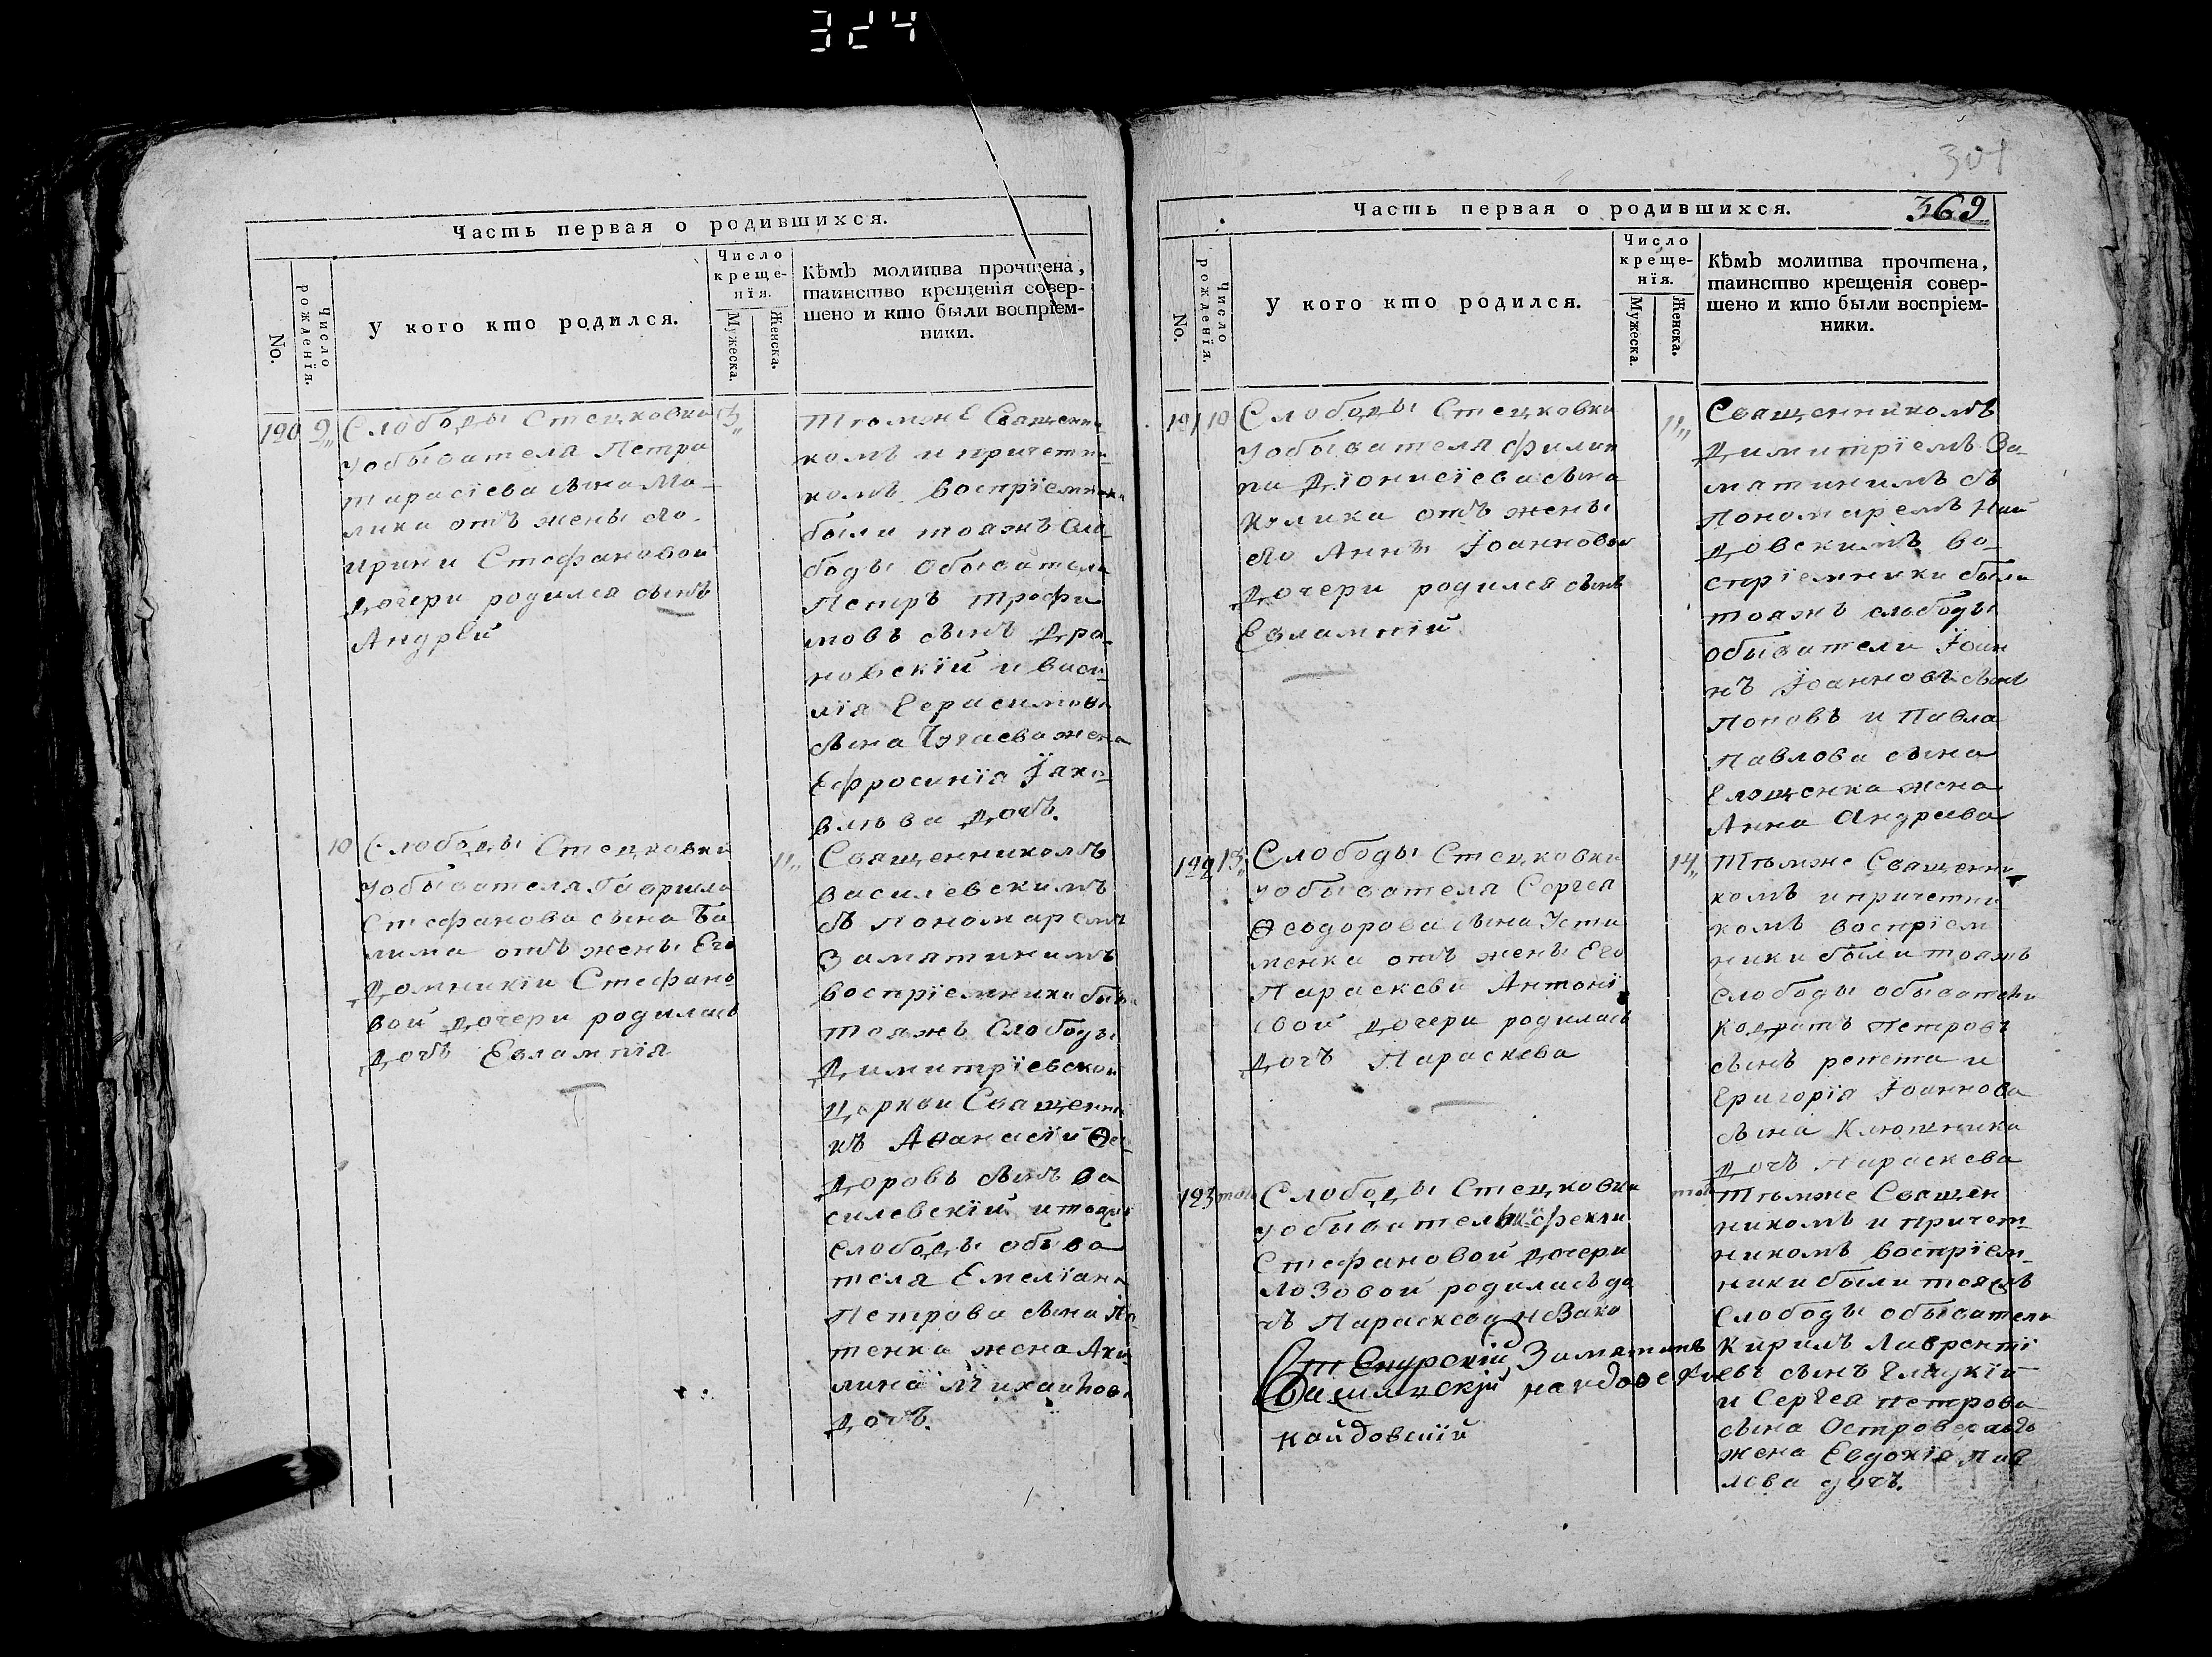 324
Часть первая о родившихся.
No.
Число рожденїя.
У кого кто родился.
Число
креще-
нїя.
Мужеска.
Женска.
Кѣмъ молитва прочтена,
таинство крещенія совер-
шено и кто были воспріем-
ники.
120 9 Слободы Стецковки
у обывателя Петра
тарасіева сына Ма-
лика отъ жены его
ирини Стефановой
дочери родился сынъ
Андрей
Тѣмже Священни-
комъ и причетни-
комъ воспріемники
были тояжъ Сло-
боды Обыватели
Петръ трофи
мовъ сынъ
новскій и васи-
лія Герасимова
сына жена
Ефросинїя Їако-
влѣва дочь.
10 Слободы Стецковки
у обывателя Гавриила
Стефанова сына Ба
лима отъ жены Его
Домникїи Стефано
вой дочери родилась
дочь Евлампїя
11 Священникомъ
василевскимъ
съ Пономаремъ
Замятинимъ
воспрїемники были
тояжъ Слободы
Димитрїевской
Церкви Священни
къ Аѳанасїй Ѳео-
доровъ сынъ ва
силевскїй и тояжъ
слободы обыва
теля Емелїана
Петрова сына
тенка жена Аку
лина Михайлова
дочь.
301
Часть первая о родившихся. 369
No.
Число рожденїя.
У кого кто родился.
Число
креще-
нїя.
Мужеска.
Женска.
Кѣмъ молитва прочтена,
таинство крещенія совер-
шено и кто были воспріем-
ники.
121 10 Слободы Стецковки
у обывателя филип
па Дїонисїева сына
Кулика отъ жены
его Анны Їоанновой
дочери родился сынъ
Евлампїй
11 Священникомъ
Димитрїемъ За-
матинимъ съ
Пономаремъ Най
довскимъ во-
спрїемники были
тояжъ слободы
обыватели Їоан
нъ Їоанновъ сынъ
Поповъ и Павла
Павлова сына
Глущенка жена
Анна Андреева
122 13 Слободы Стецковки
у обывателя Сергея
Ѳеодорова сына Усти
менка отъ жены Его
Параскеви Антонї
евой дочери родилась
дочъ Параскева
14 Тѣмже Священни
комъ и причетни
комъ воспрїем
ники были тояжъ
слободы обыватели
Кодратъ Петровъ
сынъ репета и
Григорїя Їоаннова
сына Ключника
дочъ Параскева
123 той Слободы Стецковки
у обывателки феклы
Стефановой дочери
Лозовой родилась до
чъ Параскева незако
той Тѣмже Священ
никомъ и причет-
никомъ воспрїем-
ники были тояжъ
слободы обыватели
Кирилъ Лаврентї
евъ сынъ Глацкїй
и Сергея петрова
сына
жена Евдокїя Пав
лова дочъ.
Заматинъ
найдовский